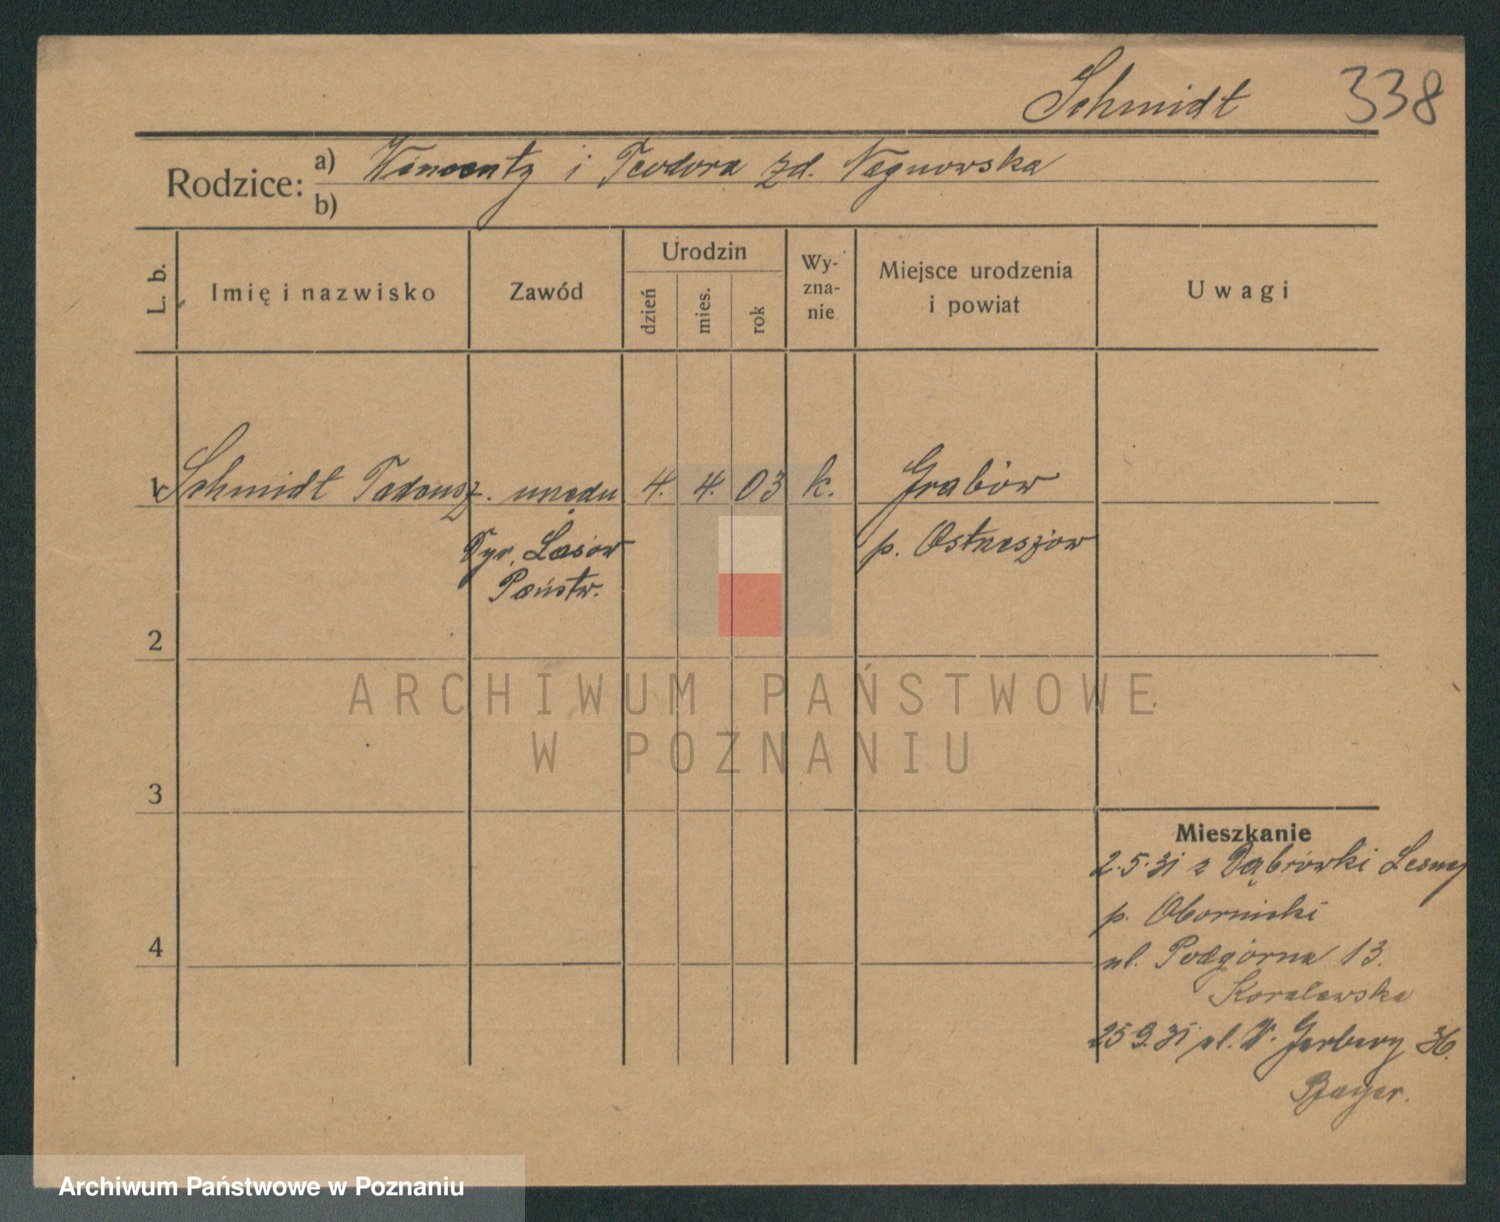 Schmidt 338
Rodzice: a) Wincenty i Teodora zd. Nagnowska
b)
L. b. Imię i nazwisko Zawód Urodzin dzień mies. rok Wy-zna-nie Miejsce urodzenia i powiat Uwagi
1 Schmidt Tadeusz. urzędn 4. 4. 03 k. Grabów
Dyr. Lasów p. Ostrzeszów
Państw.
2
ARCHIWUM PAŃSTWOWE
W POZNANIU
3
Mieszkanie
2.5.31 z Dąbrówki Leśnej
p. Obornicki
4
ul. Podgórna 13.
25 9. 31 ul. W. Garbary
Archiwum Państwowe w Poznaniu